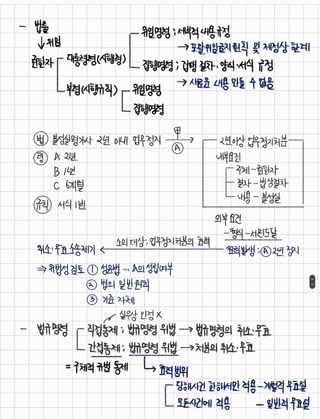 - 법률
↓위임
대통령령(시행령)
위임명령 : 세부적 내용규정
→ 포괄위임금지원칙 및 제정상 한계
집행명령 : 집행 절차·양식·서식 규정
→ 새로운 내용 만들 수 없음
부령(시행규칙)
위임명령
집행명령
법 불성실평가사 2년 이내 업무정지
甲
Ⓐ
2년이상 업무정지처분
령 A 2년
B 1년
C 6개월
규칙 서식 1번
내부요건
주체 -
절차 - 법상절차
내용 - 불성실
외부요건
- 형식 - 서면도달
취소·무효 소송제기
소의 대상 : 업무정지처분의 효력
효력발생 : Ⓐ 2년 정지
⇒ 위법성 검토 ① 성문법 … A의 성립여부
② 법의 일반원칙
③ 기초 자체
실무상 인정 X
- 법규명령
직접통제 : 법규명령 위법 → 법규명령의 취소·무효
간접통제 : 법규명령 위법 → 처분의 취소·무효
= 구체적 규범 통제
→ 효력범위
당해사건 한해서만 적용 - 개별적 무효설
모든사건에 적용 - 일반적 무효설